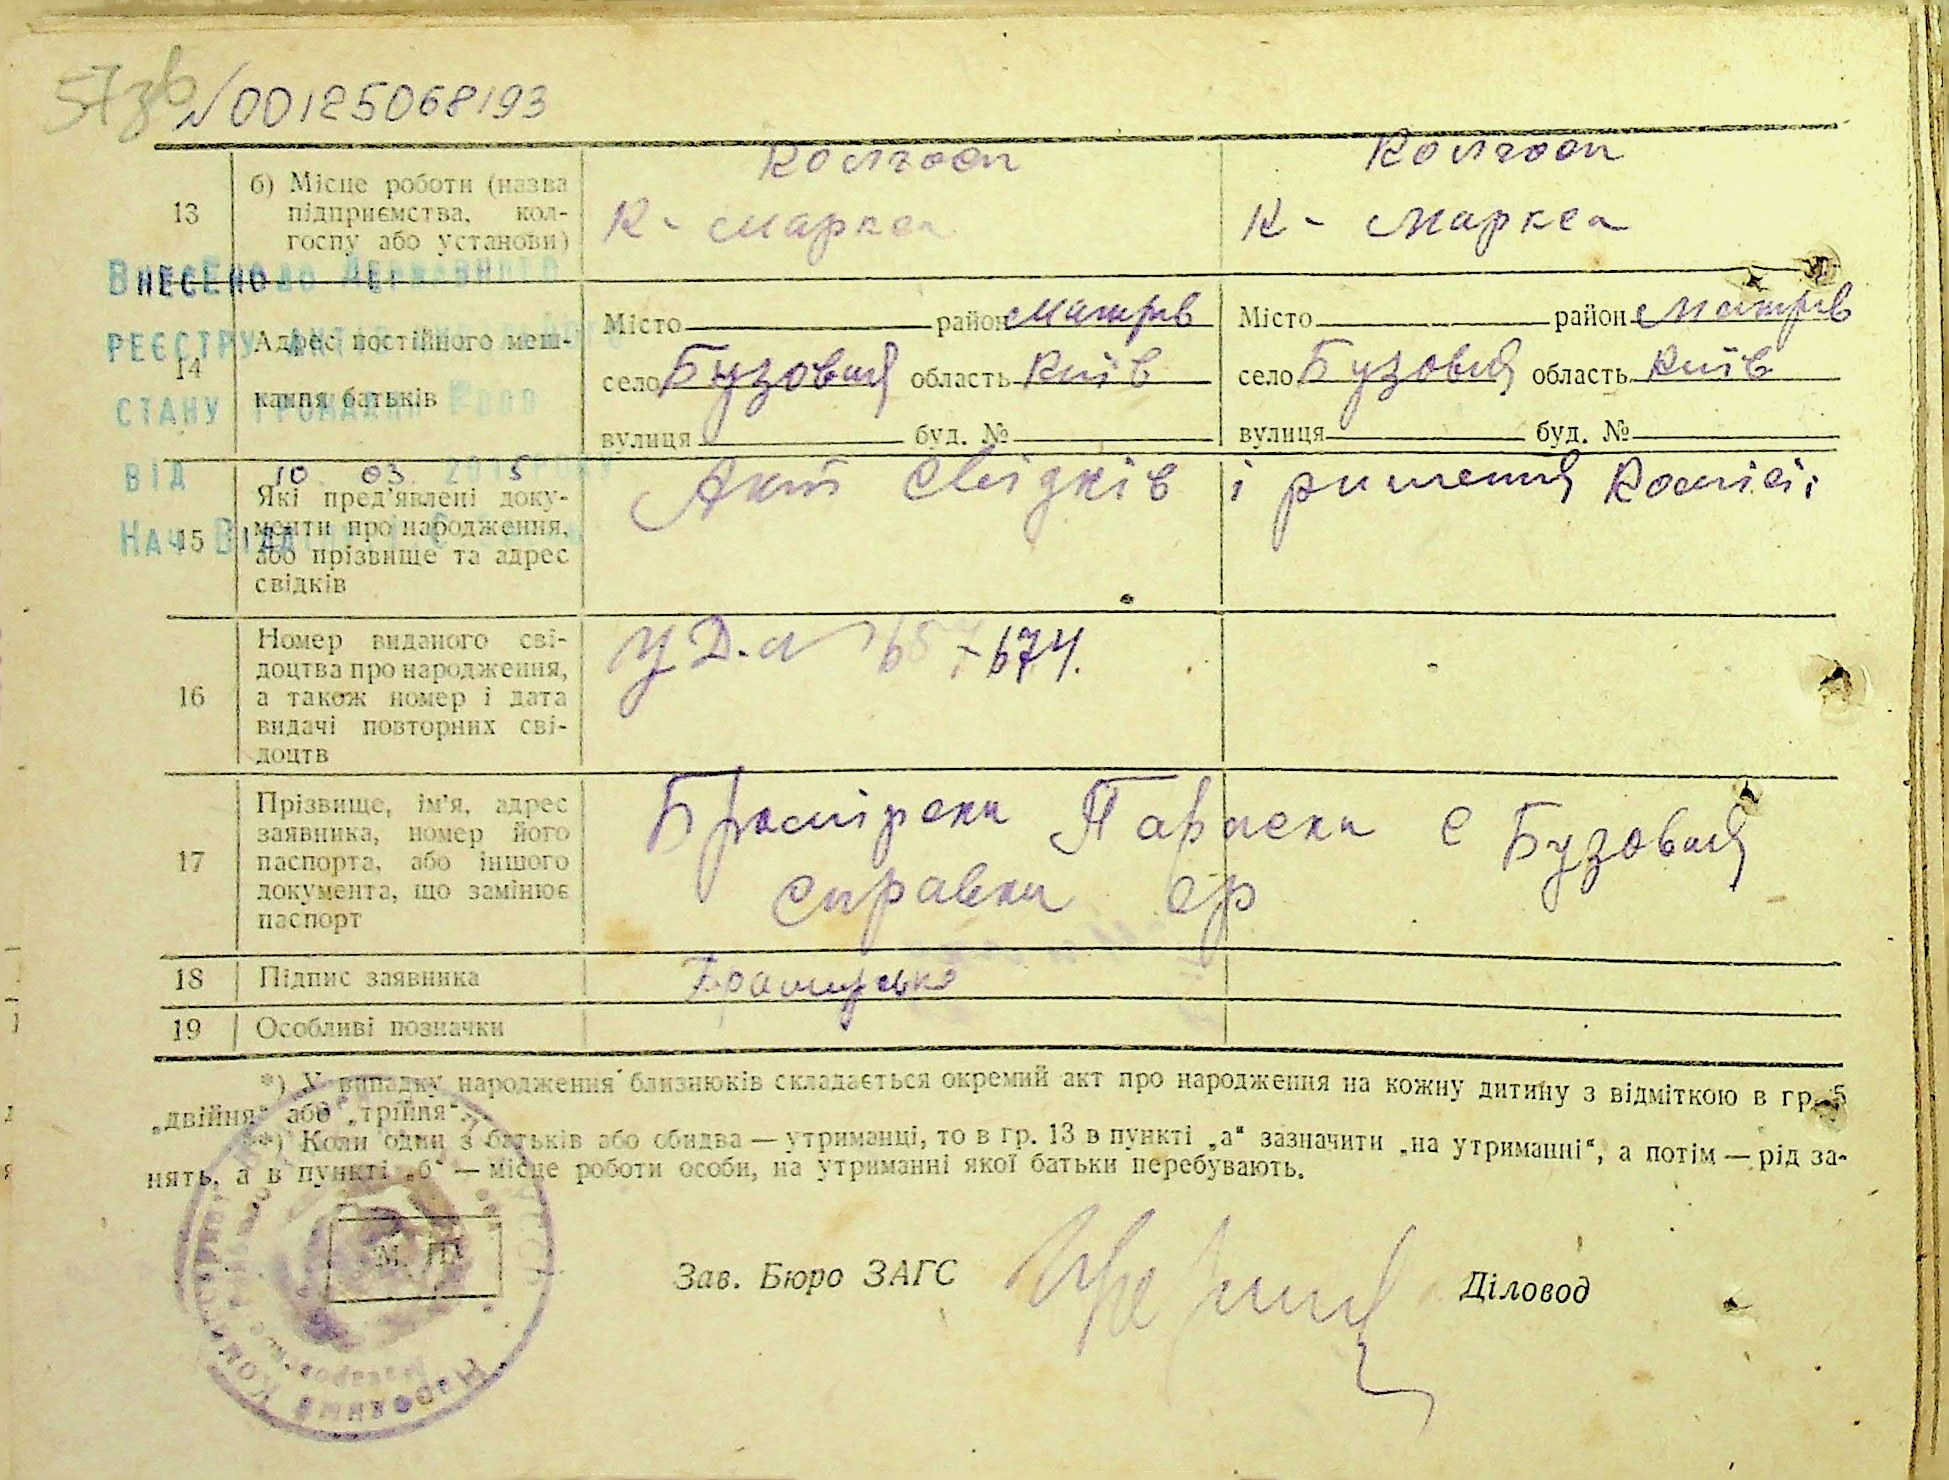 57зв
№00125068193
13
б) Місце роботи (назва
підприємства, кол-
госпу або установи)
Колгосп
К - Маркса
Колгосп
К - Маркса
Внесено до Державного
реєстру актів
стану громадян
від 10 03 2015
Нач Відд
14
Адрес постійного меш-
кання батьків
Місто район Макарів
село Бузовая область Київ
вулиця буд. №
Місто район Макарів
село Бузовая область Київ
вулиця буд. №
15
Які пред'явлені доку-
менти про народження,
або прізвище та адрес
свідків
Акт свідків і рішення комісіі
16
Номер виданого сві-
доцтва про народження,
а також номер і дата
видачі повторних сві-
доцтв
674.
17
Прізвище, ім'я, адрес
заявника, номер його
паспорта, або іншого
документа, що замінює
паспорт
Параска с Бузовая
справка ср
18
Підпис заявника
19
Особливі позначки
*) У випадку народження близнюків складається окремий акт про народження на кожну дитину з відміткою в гр. 5
„двійня“ або „трійня“.
**) Коли один з батьків або обидва — утриманці, то в гр. 13 в пункті „а“ зазначити „на утриманні“, а потім — рід за-
нять, а в пункті „б“ — місце роботи особи, на утриманні якої батьки перебувають.
М. П.
Зав. Бюро ЗАГС
Діловод